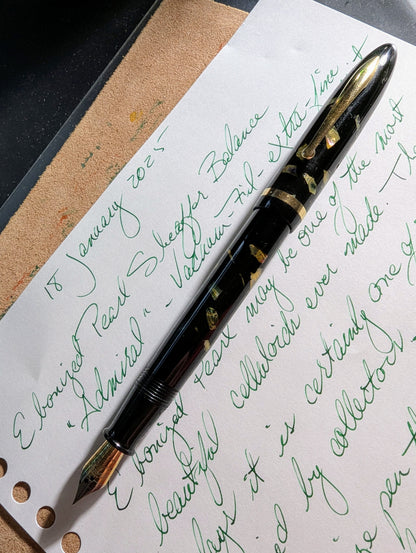 18 January 2025
Ebonized Pearl Sheaffer Balance
"Admiral" - Vacuum-Fil - extra-fine. +
Ebonized Pearl may be one of the most
beautiful celluloids ever made. The
it is certainly one of
by collectors
pen